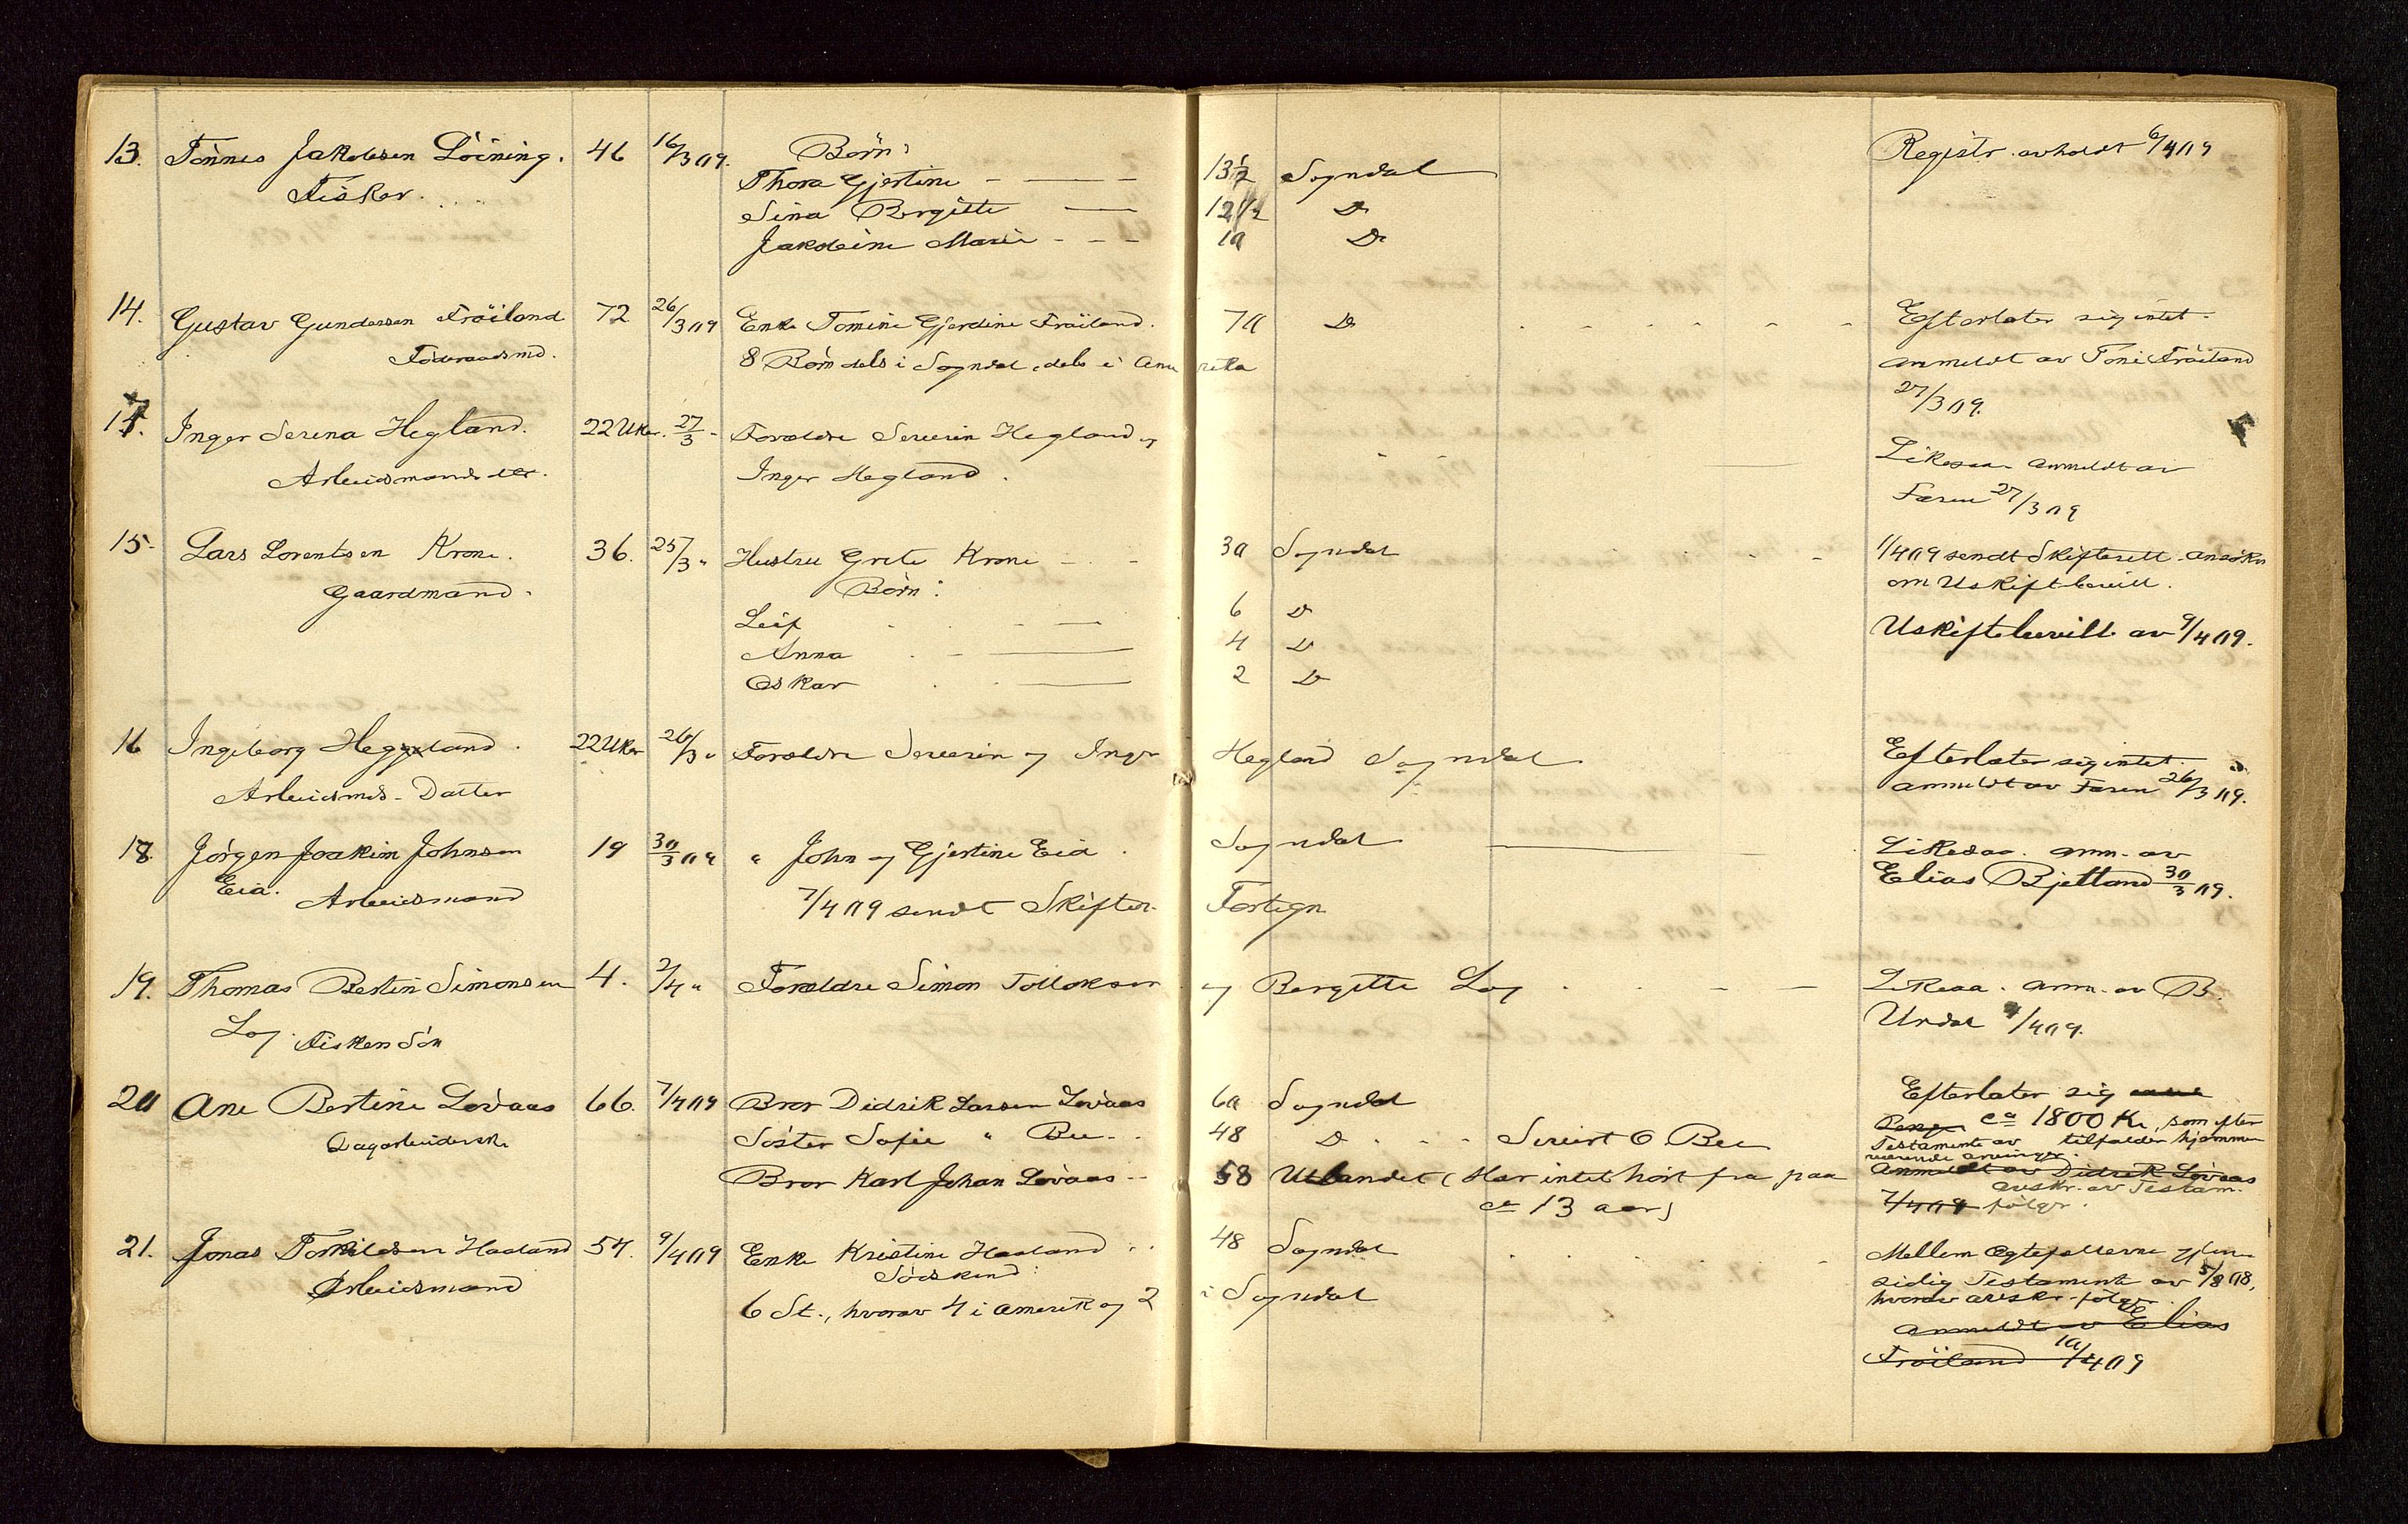 13. Tönnes Jakobsen Löining. 46 16/3 09. Börn: Registr. avholdt 6/4 09
Fisker. Thora Gjertine 13 1/2 Sogndal
Sina Bergitte 12 1/2 Do
Jakobine Marie 10 Do
14. Gustav Gundersen Fröiland 72 26/3 09 Enke Tomine Gjerdine Fröiland. 70 Do Efterlater sig intet.
Föderaadsmd. 8 Börn dels i Sogndal, dels i Amerika anmeldt av Toni Fröiland
27/3 09.
17. Inger Serina Hegland. 22 Uker. 27/3 Forældre Severin Hegland og Likesaa anmeldt av
Arbeidsmands dtr. Inger Hegland. Faren 27/3 09
15. Lars Lorentsen Krone. 36. 25/3 " Hustru Grete Krone 30 Sogndal 1/4 09 sendt Skifterett. ansökn
Gaardmand. Börn: om Uskiftbevill.
Leif 6 Do Uskiftebevill. av 9/4 09.
Anna 4 Do
Oskar 2 Do
16 Ingeborg Heggland. 22 Uker 26/3 " Forældre Severin og Inger Hegland Sogndal Efterlater sig intet.
Arbeidsmds. Datter anmeldt av Faren 26/3 09.
18. Jörgen Joakim Johnsen 19 30/3 09 " John og Gjertine Eia. Sogndal Likesaa. anm. av
Eia. Arbeidsmand 7/4 09 sendt Skifter. Fortegn Elias Bjelland 30/3 09.
19. Thomas Bertin Simonsen 4. 2/4 " Forældre Simon Tolloksen og Bergitte Log Likesaa. anm. av B.
Log. Fiskers Sön Urdal /4 09.
20 Ane Bertine Lövaas 66. 7/4 09 Bror Didrik Larsen Lövaas 60 Sogndal Efterlater sig
Dagarbeiderske Söster Sofie " Bee 48 Do Sivert O. Bee Penge ca 1800 Kr., som efter
Testamente av tilfalder hjemmeværende arvinger.
Bror Karl Johan Lövaas 58 Utlandet (Har intet hört fra paa Anmeldt av Didrik Lövaas
ca 13 aar) avskr. av Testam.
7/4 09 följer.
21. Jonas Torkildsen Haaland 54. 9/4 09 Enke Kristine Haaland 48 Sogndal Mellem Ægtefællerne gjensidig Testamente av 5/8 08,
Arbeidsmand Södskend: hvorav avskr. följer.
6 St., hvorav 4 i Amerik og 2 i Sogndal anmeldt av Elias
Fröiland 10/4 09